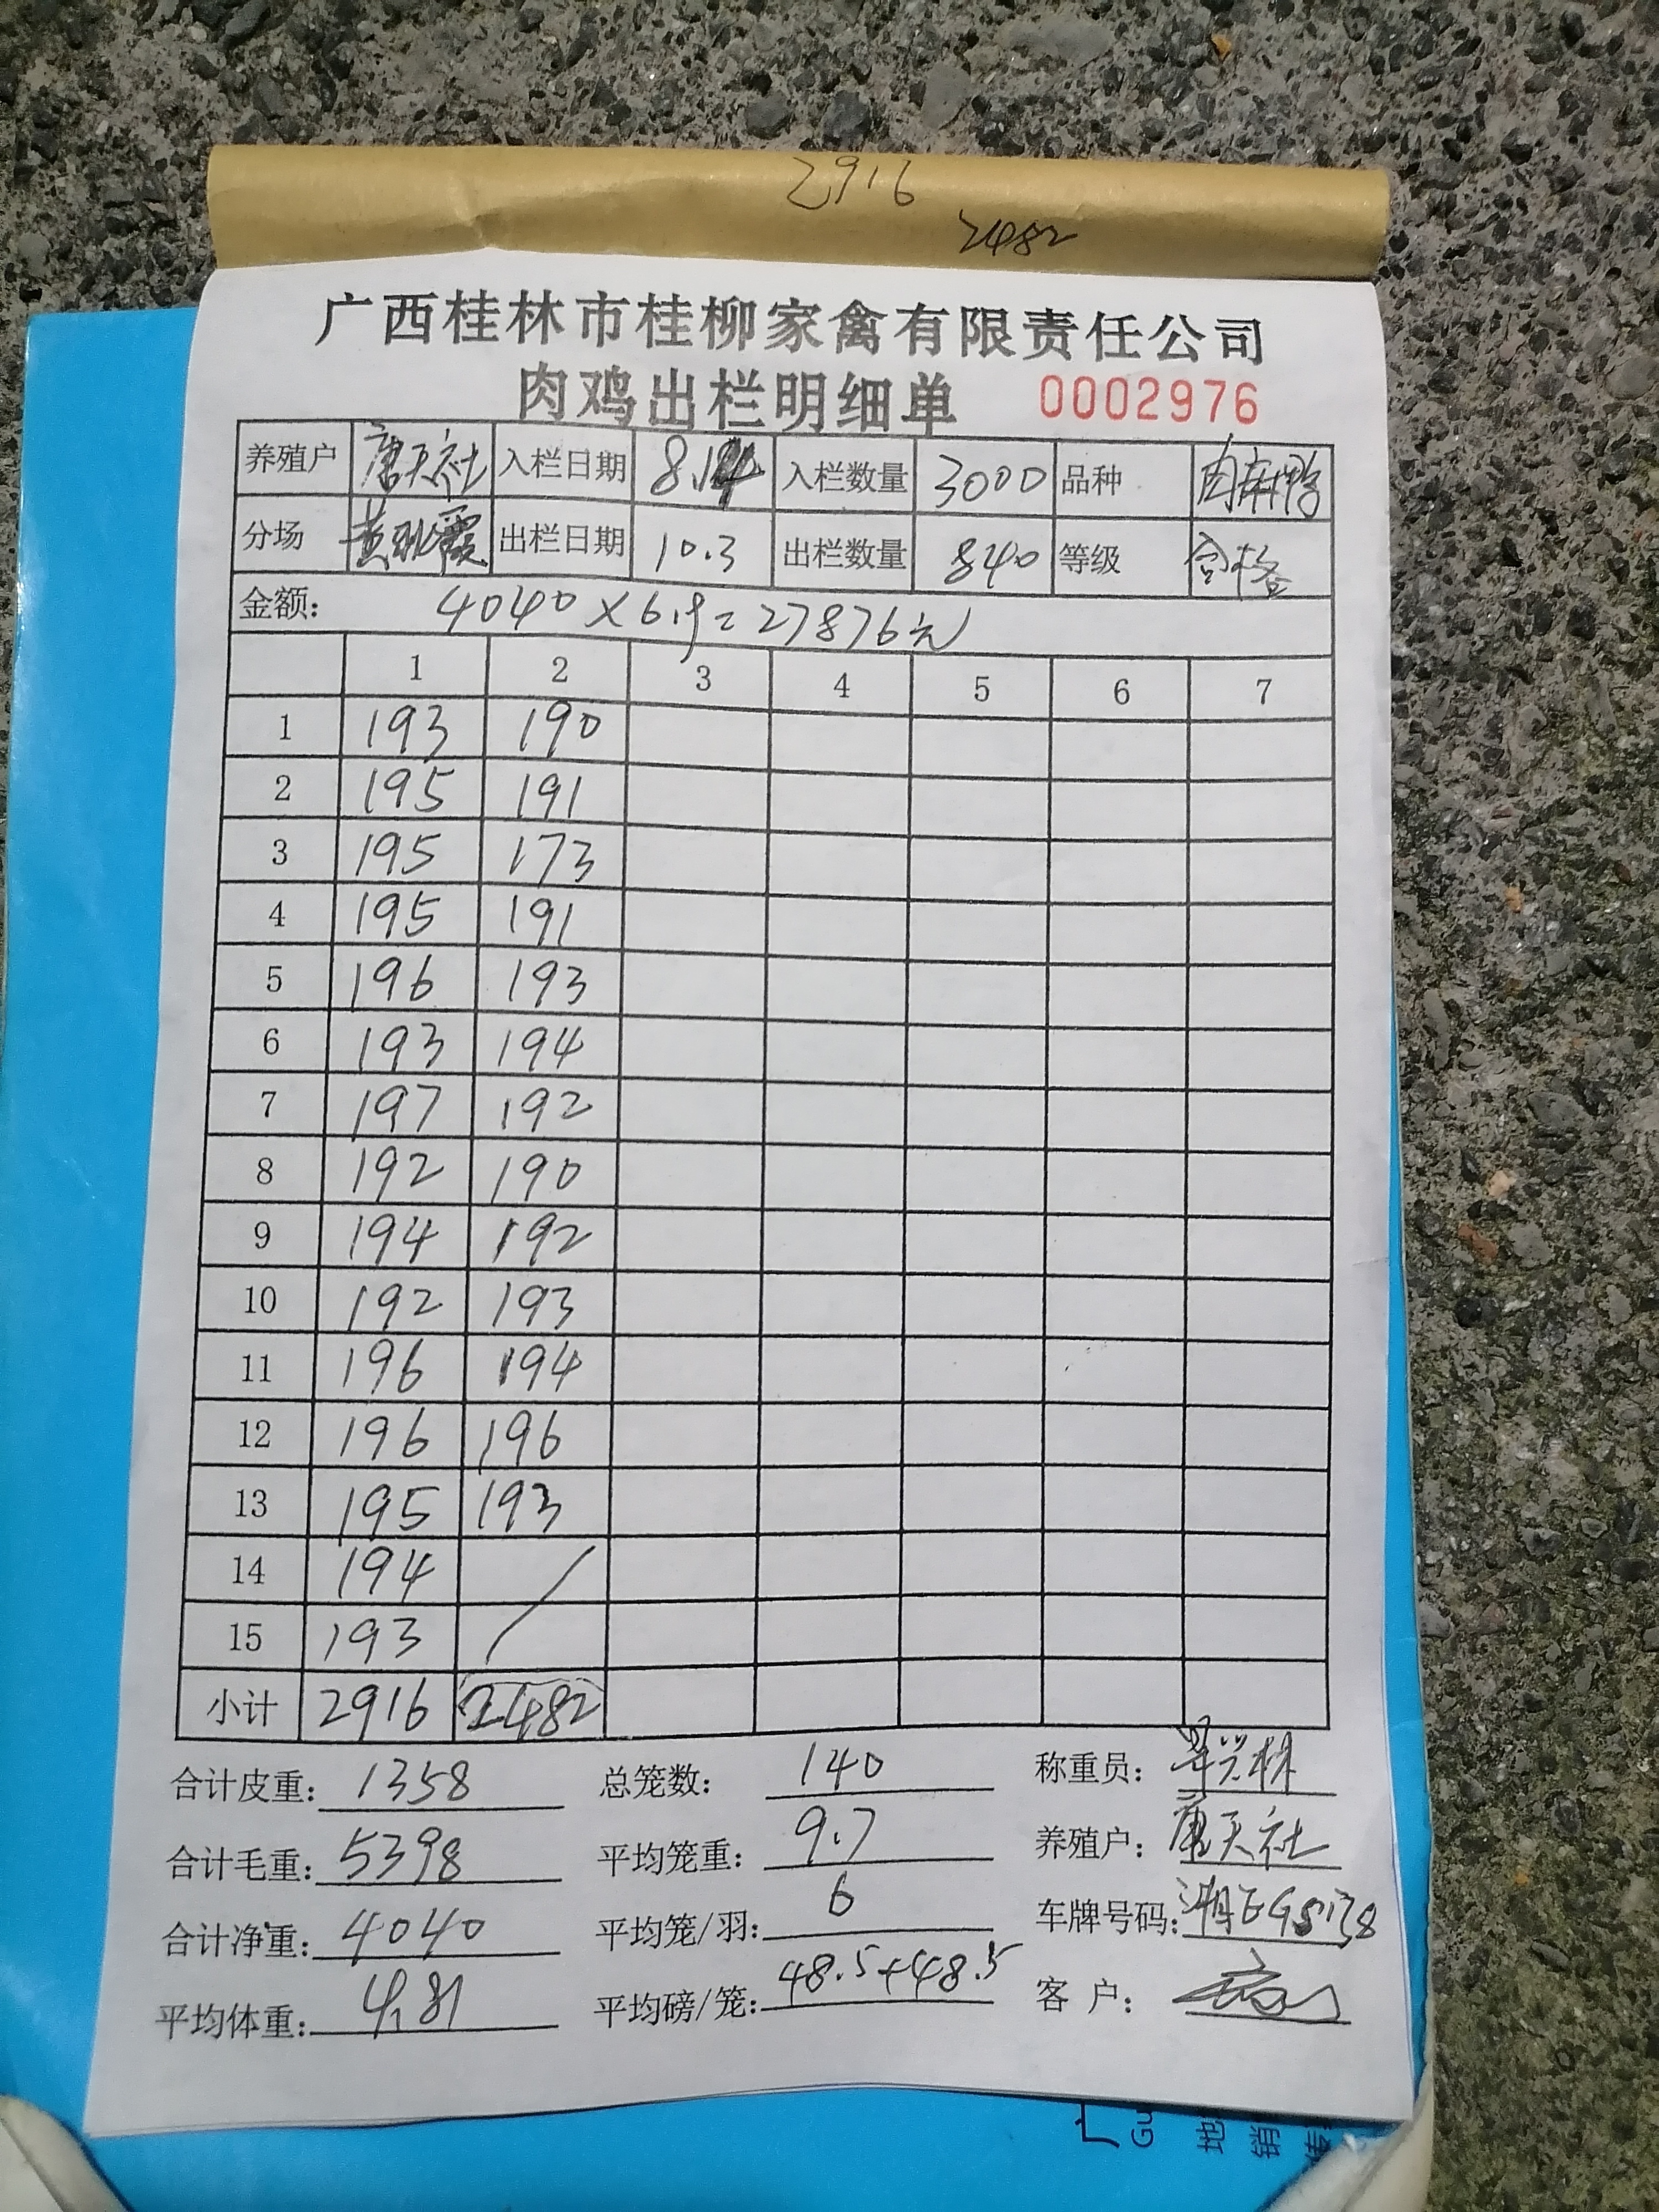 2916
2482
广西桂林市桂柳家禽有限责任公司
肉鸡出栏明细单 0002976
养殖户 唐天社 入栏日期 8.14 入栏数量 3000 品种 肉麻鸭
分场 出栏日期 10.3 出栏数量 840 等级 合格
金额： 4040×6.9=27876元
1 2 3 4 5 6 7
1 193 190
2 195 191
3 195 173
4 195 191
5 196 193
6 193 194
7 197 192
8 192 190
9 194 192
10 192 193
11 196 194
12 196 196
13 195 193
14 194
15 193
小计 2916 2482
合计皮重： 1358 总笼数： 140 称重员：
合计毛重： 5398 平均笼重： 9.7 养殖户： 唐天社
合计净重： 4040 平均笼/羽： 6 车牌号码：
平均体重： 4.81 平均磅/笼： 48.5+48.5 客 户：
广
Gu
地
销
传